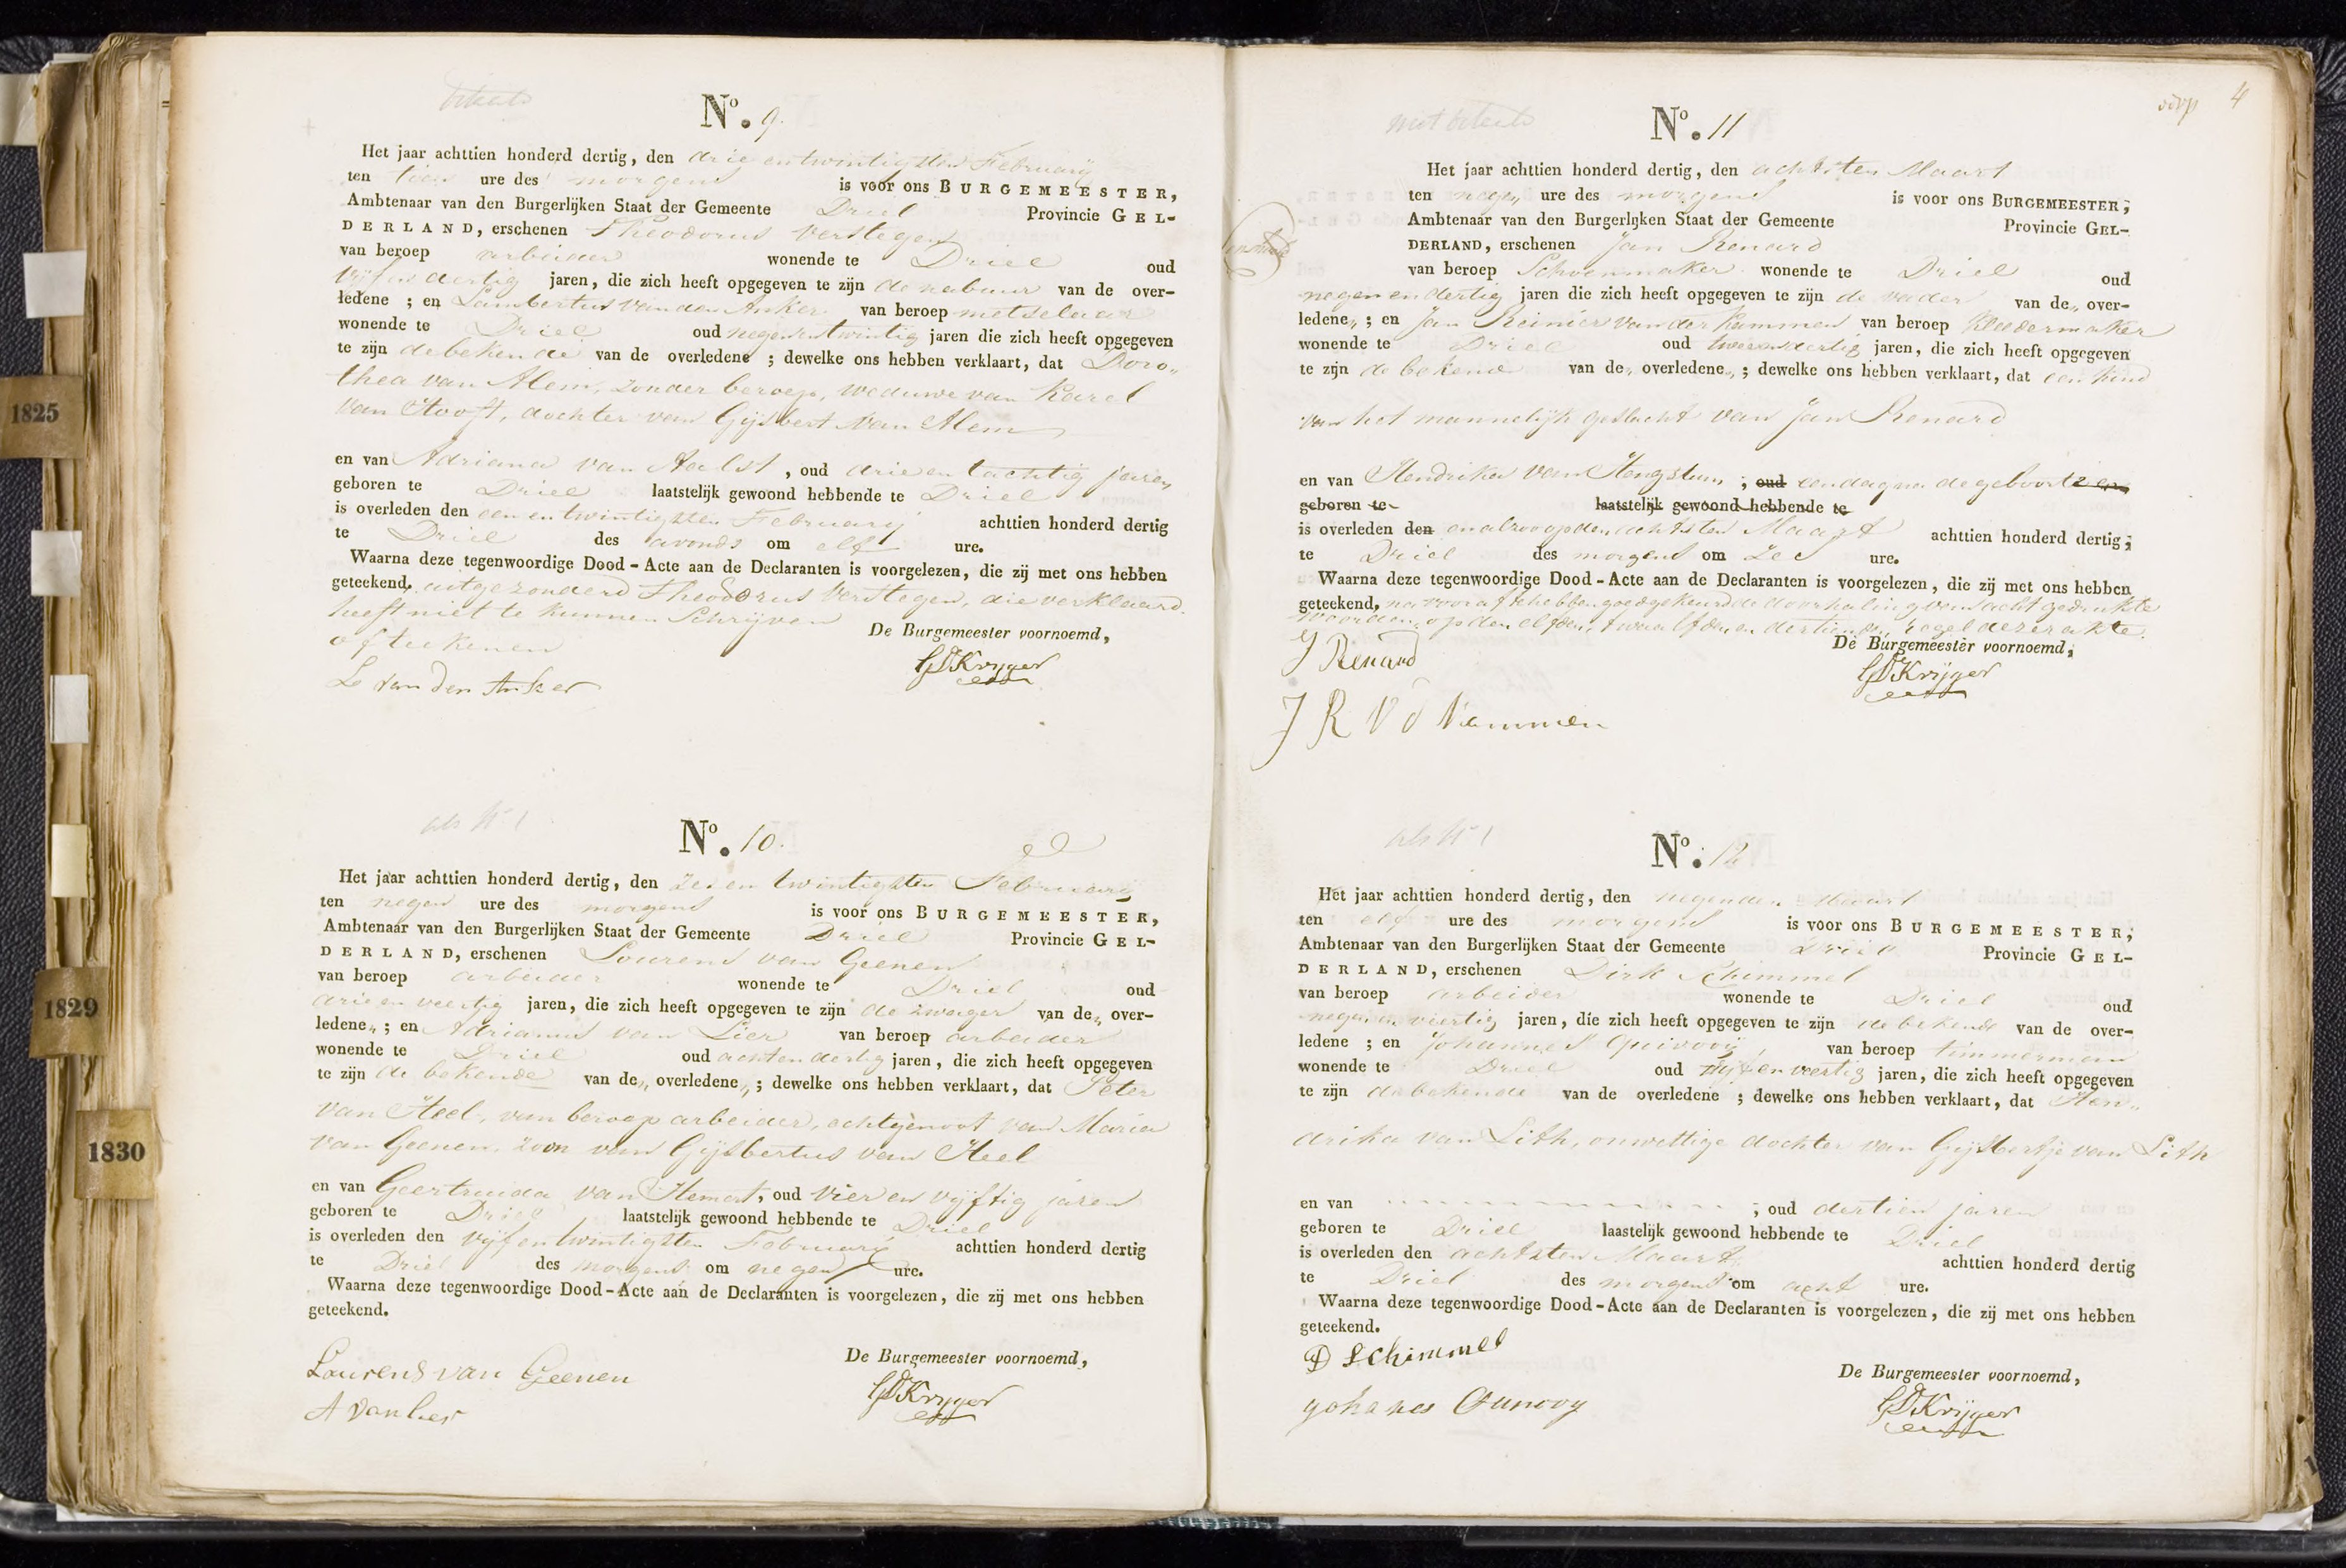 1825
1829
1830
No. 9.
Het jaar achttien honderd dertig, den drie en twintigsten February
ten tien ure des morgens is voor ons BURGEMEESTER,
Ambtenaar van den Burgerlijken Staat der Gemeente Driel Provincie GEL-
DERLAND, erschenen Theodorus Verstegen
van beroep arbeider wonende te Driel oud
vijf en dertig jaren, die zich heeft opgegeven te zijn de nabuur van de over-
ledene ; en Lambertus van den Anker van beroep metselaar
wonende te Driel oud negenentwintig jaren die zich heeft opgegeven
te zijn de bekende van de overledene ; dewelke ons hebben verklaart, dat Doro„
thea van Alem, zonder beroep, weduwe van Karel
van Hooft, dochter van Gijsbert van Alem
en van Adriana van Aalst, oud drie en tachtig jaren
geboren te Driel laatstelijk gewoond hebbende te Driel
is overleden den een en twintigsten February achttien honderd dertig
te Driel des avonds om elf ure.
Waarna deze tegenwoordige Dood-Acte aan de Declaranten is voorgelezen, die zij met ons hebben
geteekend, uitgezonderd Theodorus Verstegen, die verklaard
heeft niet te kunnen Schrijven
of teekenen
De Burgemeester voornoemd,
L van den Anker
Krijger
als No 1
No. 10.
Het jaar achttien honderd dertig, den zes en twintigsten February
ten negen ure des morgens is voor ons BURGEMEESTER,
Ambtenaar van den Burgerlijken Staat der Gemeente Driel Provincie GEL-
DERLAND, erschenen Lourens van Geenen
van beroep arbeider wonende te Driel oud
drie en veertig jaren, die zich heeft opgegeven te zijn de zwager van de„ over-
ledene„ ; en Adrianus van Lier van beroep arbeider
wonende te Driel oud acht en dertig jaren, die zich heeft opgegeven
te zijn de bekende van de„ overledene„ ; dewelke ons hebben verklaart, dat Peter
van Heel, van beroep arbeider, echtgenoot van Maria
van Geenen, zoon van Gijsbertus van Heel
en van Geertruida van Hemert, oud vier en vijftig jaren
geboren te Driel laatstelijk gewoond hebbende te Driel
is overleden den vijf en twintigsten February achttien honderd dertig
te Driel des morgens om negen ure.
Waarna deze tegenwoordige Dood-Acte aan de Declaranten is voorgelezen, die zij met ons hebben
geteekend.
De Burgemeester voornoemd,
Laurens van Geenen
A van Lier
Krijger
4
No. 11
Het jaar achttien honderd dertig, den achtsten Maart
ten negen ure des morgens is voor ons BURGEMEESTER,
Ambtenaar van den Burgerlijken Staat der Gemeente Provincie GEL-
DERLAND, erschenen Jan Renard
van beroep Schoenmaker wonende te Driel oud
negen en dertig jaren die zich heeft opgegeven te zijn de vader van de„ over-
ledene„ ; en Jan Reinier van der Kammen van beroep kleedermaker
wonende te Driel oud twee en dertig jaren, die zich heeft opgegeven
te zijn de bekende van de„ overledene„ ; dewelke ons hebben verklaart, dat een kind
van het mannelijk geslacht van Jan Renard
en van Hendrika van Hengstum ; oud een dag na de geboorte
geboren te laatstelijk gewoond hebbende te
is overleden den en alzoo op den achtsten Maart achttien honderd dertig,
te Driel des morgens om zes ure.
Waarna deze tegenwoordige Dood-Acte aan de Declaranten is voorgelezen, die zij met ons hebben
geteekend, na vooraf te hebben goedgekeurd de doorhaling van acht gedrukte
woorden op den elfden, twaalfden en dertienden regel dezer akte.
De Burgemeester voornoemd,
J Renard
Krijger
J R V d Kammen
als No 1
No. 12
Het jaar achttien honderd dertig, den negenden Maart
ten elf ure des morgens is voor ons BURGEMEESTER,
Ambtenaar van den Burgerlijken Staat der Gemeente Driel Provincie GEL-
DERLAND, erschenen Dirk Schimmel
van beroep arbeider wonende te Driel oud
negen en veertig jaren, die zich heeft opgegeven te zijn de bekende van de over-
ledene ; en Johannes van beroep timmerman
wonende te Driel oud vijf en veertig jaren, die zich heeft opgegeven
te zijn de bekende van de overledene ; dewelke ons hebben verklaart, dat Hen„
drika van Lith, onwettige dochter van Gijsbertje van Lith
en van ; oud dertien jaren
geboren te Driel laastelijk gewoond hebbende te Driel
is overleden den achtsten Maart achttien honderd dertig
te Driel des morgens om acht ure.
Waarna deze tegenwoordige Dood-Acte aan de Declaranten is voorgelezen, die zij met ons hebben
geteekend.
D Schimmel
De Burgemeester voornoemd,
Krijger